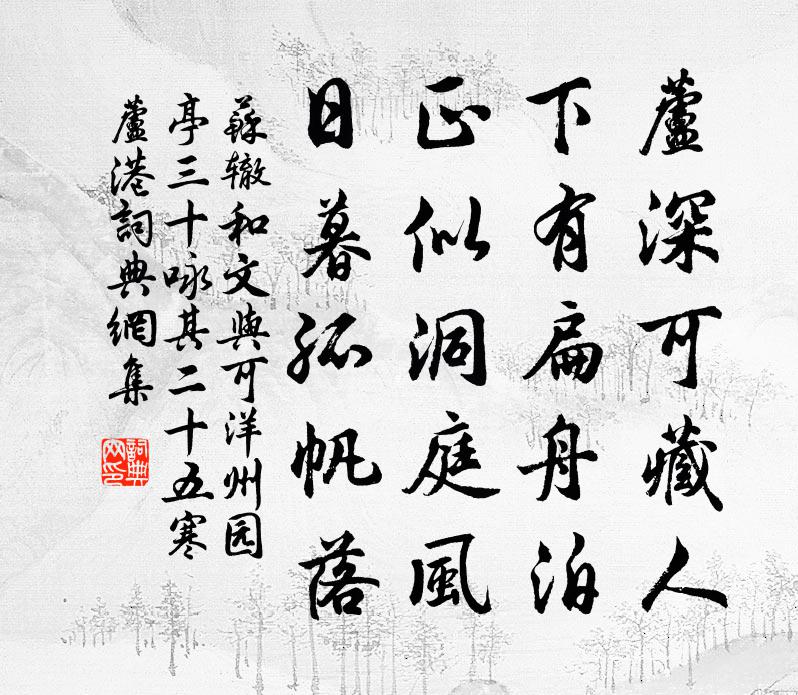 蘆深可藏人
下有扁舟泊
正似洞庭風
日暮孤帆落
蘇辙和文與可洋州园
亭三十咏其二十五寒
蘆港詞典網集
詞典网印